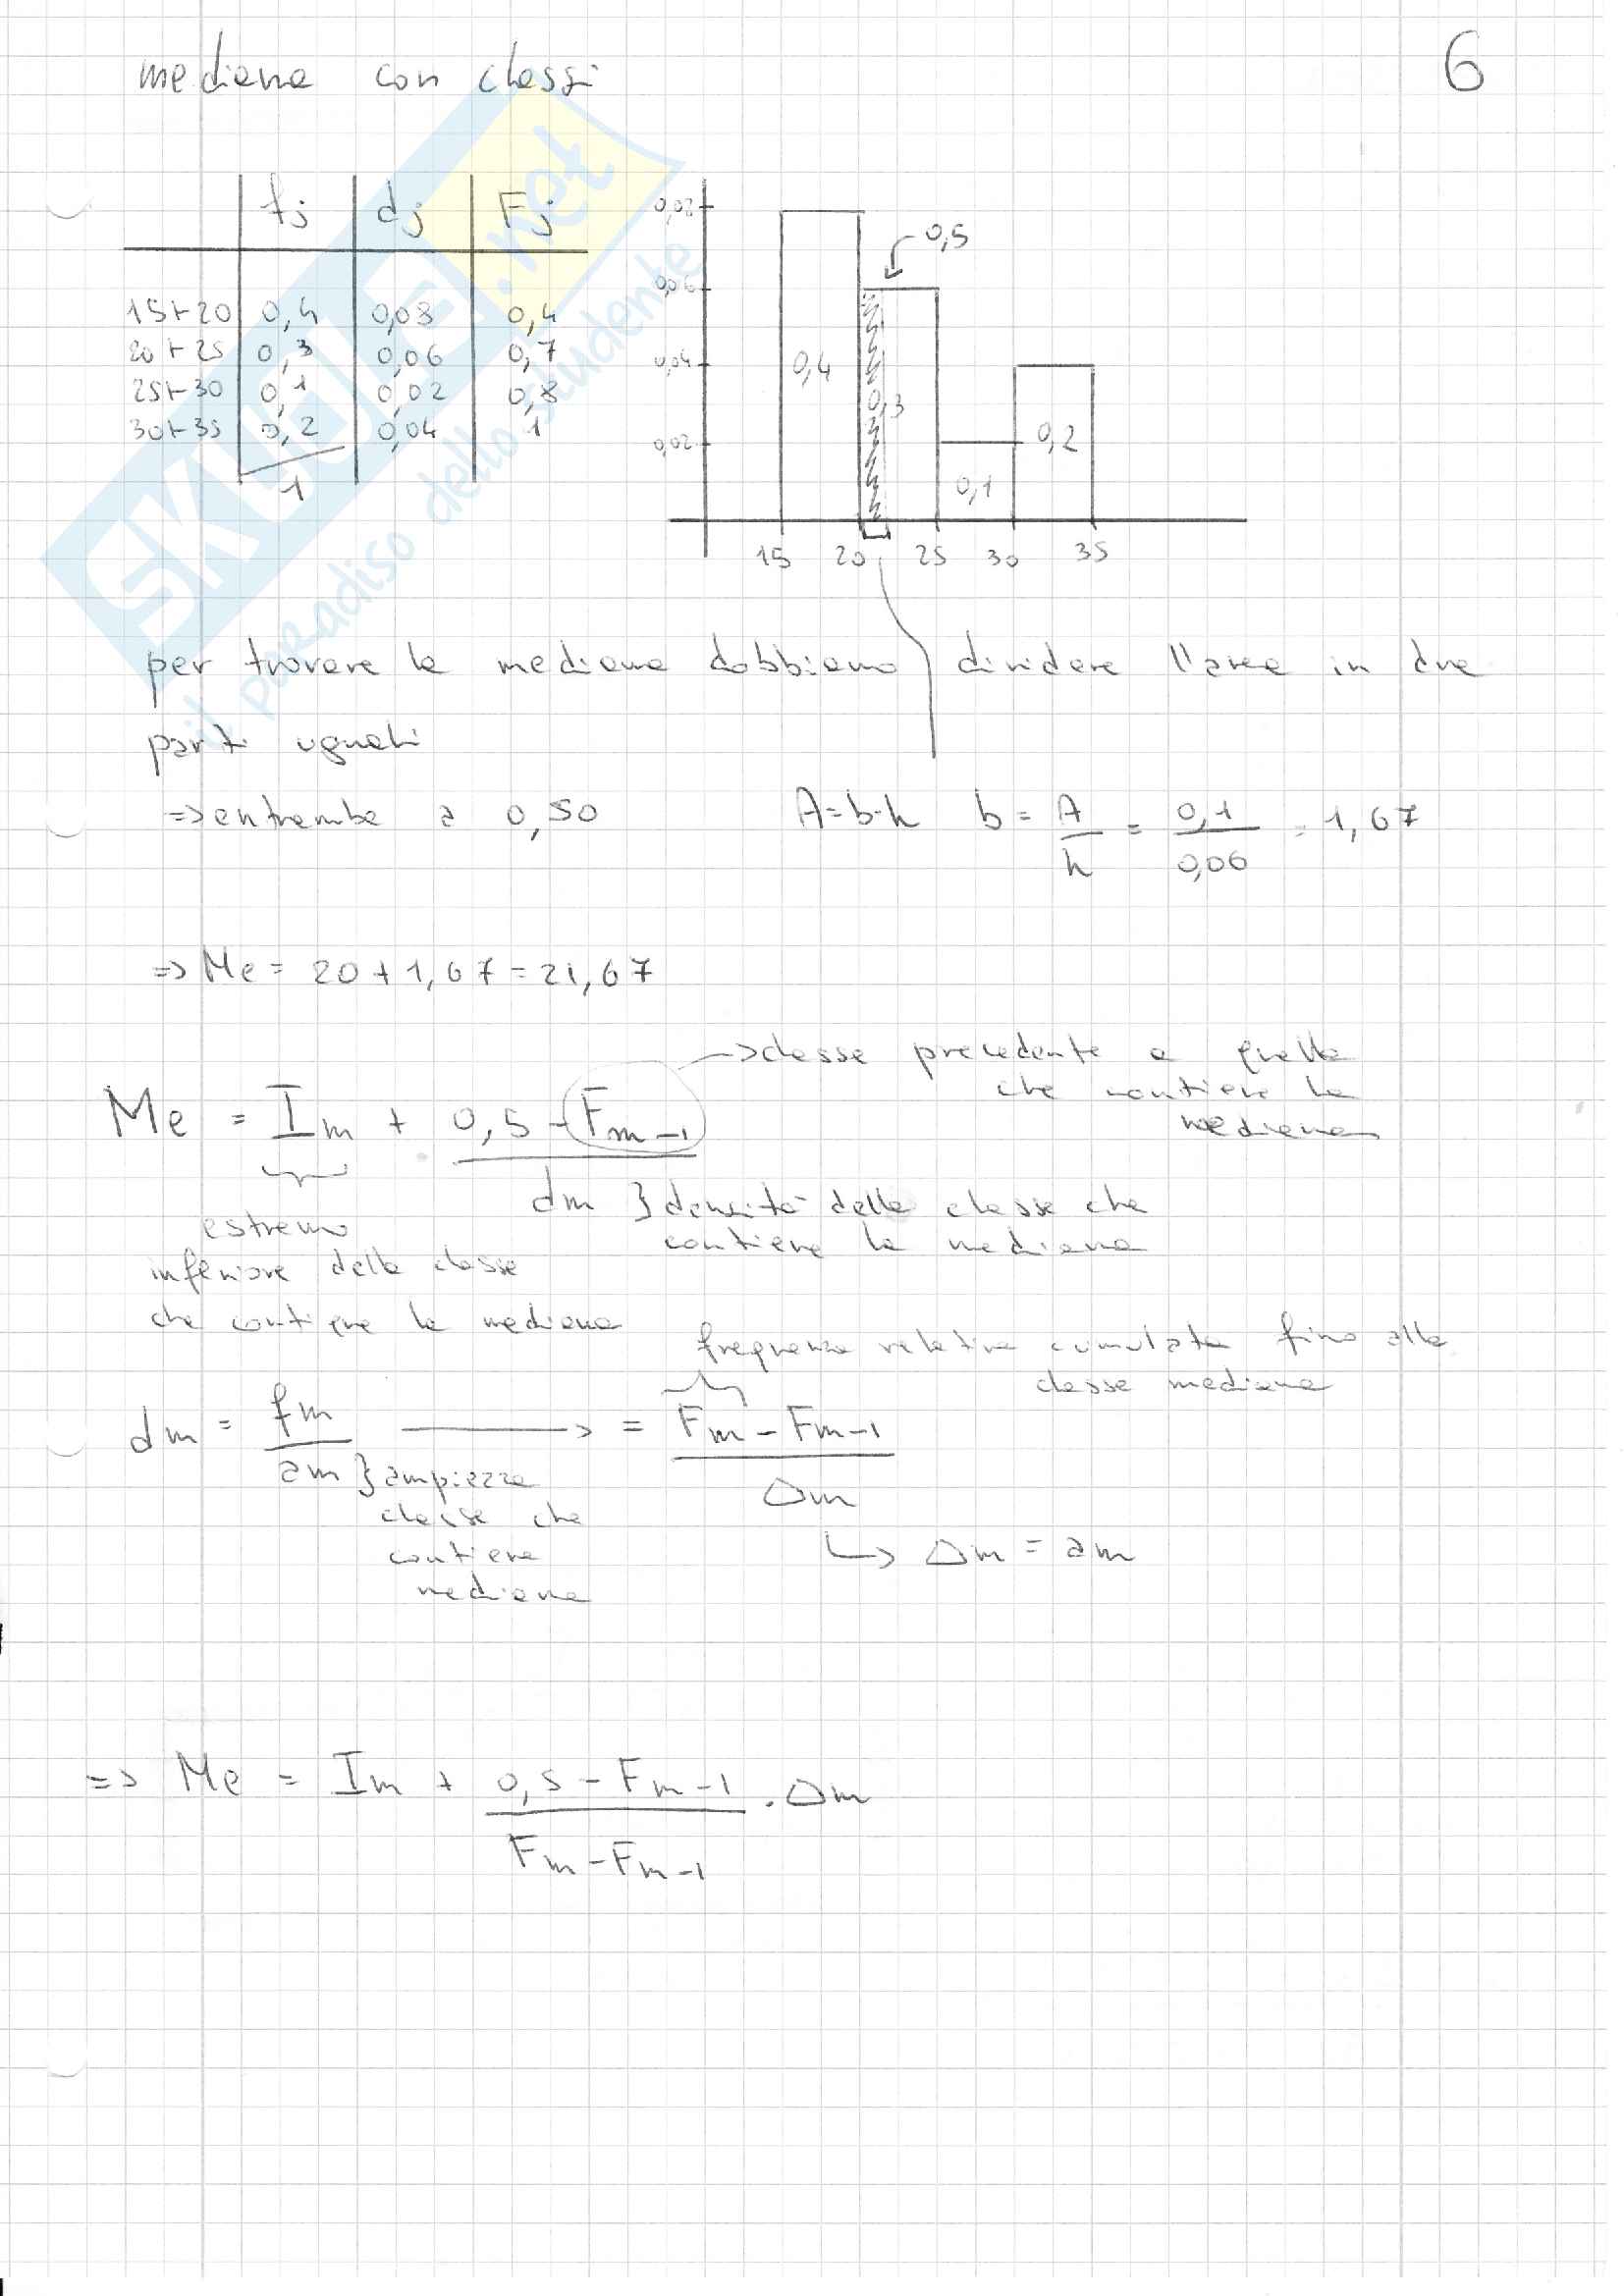 mediana con classi
6
fj dj Fj
15⊢20 0,4 0,08 0,4
20⊢25 0,3 0,06 0,7
25⊢30 0,1 0,02 0,8
30⊢35 0,2 0,04 1
1
0,08
0,06
0,04
0,02
0,5
0,4
0,3
0,1
0,2
15 20 25 30 35
per trovare la mediana dobbiamo dividere l'area in due
parti uguali
=> entrambe a 0,50 A=b·h b = A/h = 0,1/0,06 = 1,67
=> Me = 20 + 1,67 = 21,67
-> classe precedente a quella
che contiene la
mediana
Me = Im + (0,5 - Fm-1)/dm
} densità della classe che
contiene la mediana
estremo
inferiore della classe
che contiene la mediana
frequenza relativa cumulata fino alla
classe mediana
dm = fm/am -> = (Fm - Fm-1)/Δm
} ampiezza
classe che
contiene
mediana
↳ Δm = am
=> Me = Im + (0,5 - Fm-1)/(Fm - Fm-1) · Δm
SKUOLA.net
il paradiso dello studente